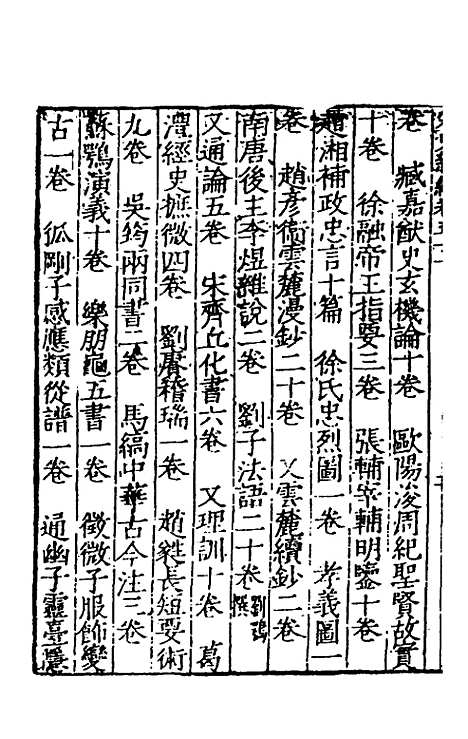 卷　臧嘉猷史玄機論十卷　歐陽浚周紀聖賢故實
十卷　徐融帝王指要三卷　張輔宰輔明鑒十卷
趙湘補政忠言十篇　徐氏忠烈圖一卷　孝義圖一
卷　趙彦衛雲麓漫鈔二十卷　又雲麓續鈔二卷
南唐後主李煜雜說二卷　劉子法語二十卷劉鶚撰
又通論五卷　宋齊丘化書六卷　又理訓十卷　葛
澧經史摭微四卷　劉賡稽瑞一卷　趙蕤長短要術
九卷　吳筠兩同書二卷　馬縞中華古今注三卷
蘇鶚演義十卷　樂朋龜五書一卷　徵微子服飾變
古一卷　狐剛子感應類從譜一卷　通幽子靈臺隱